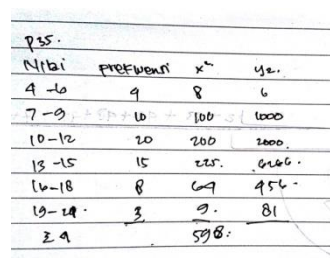 P35.
Nilai Frekwensi x² y2.
4-6 4 8 6
7-9 10 100 1000
10-12 20 200 2000.
13-15 15 225.
16-18 8 64 456-
19-21. 3 9. 81
Σ 4 598: